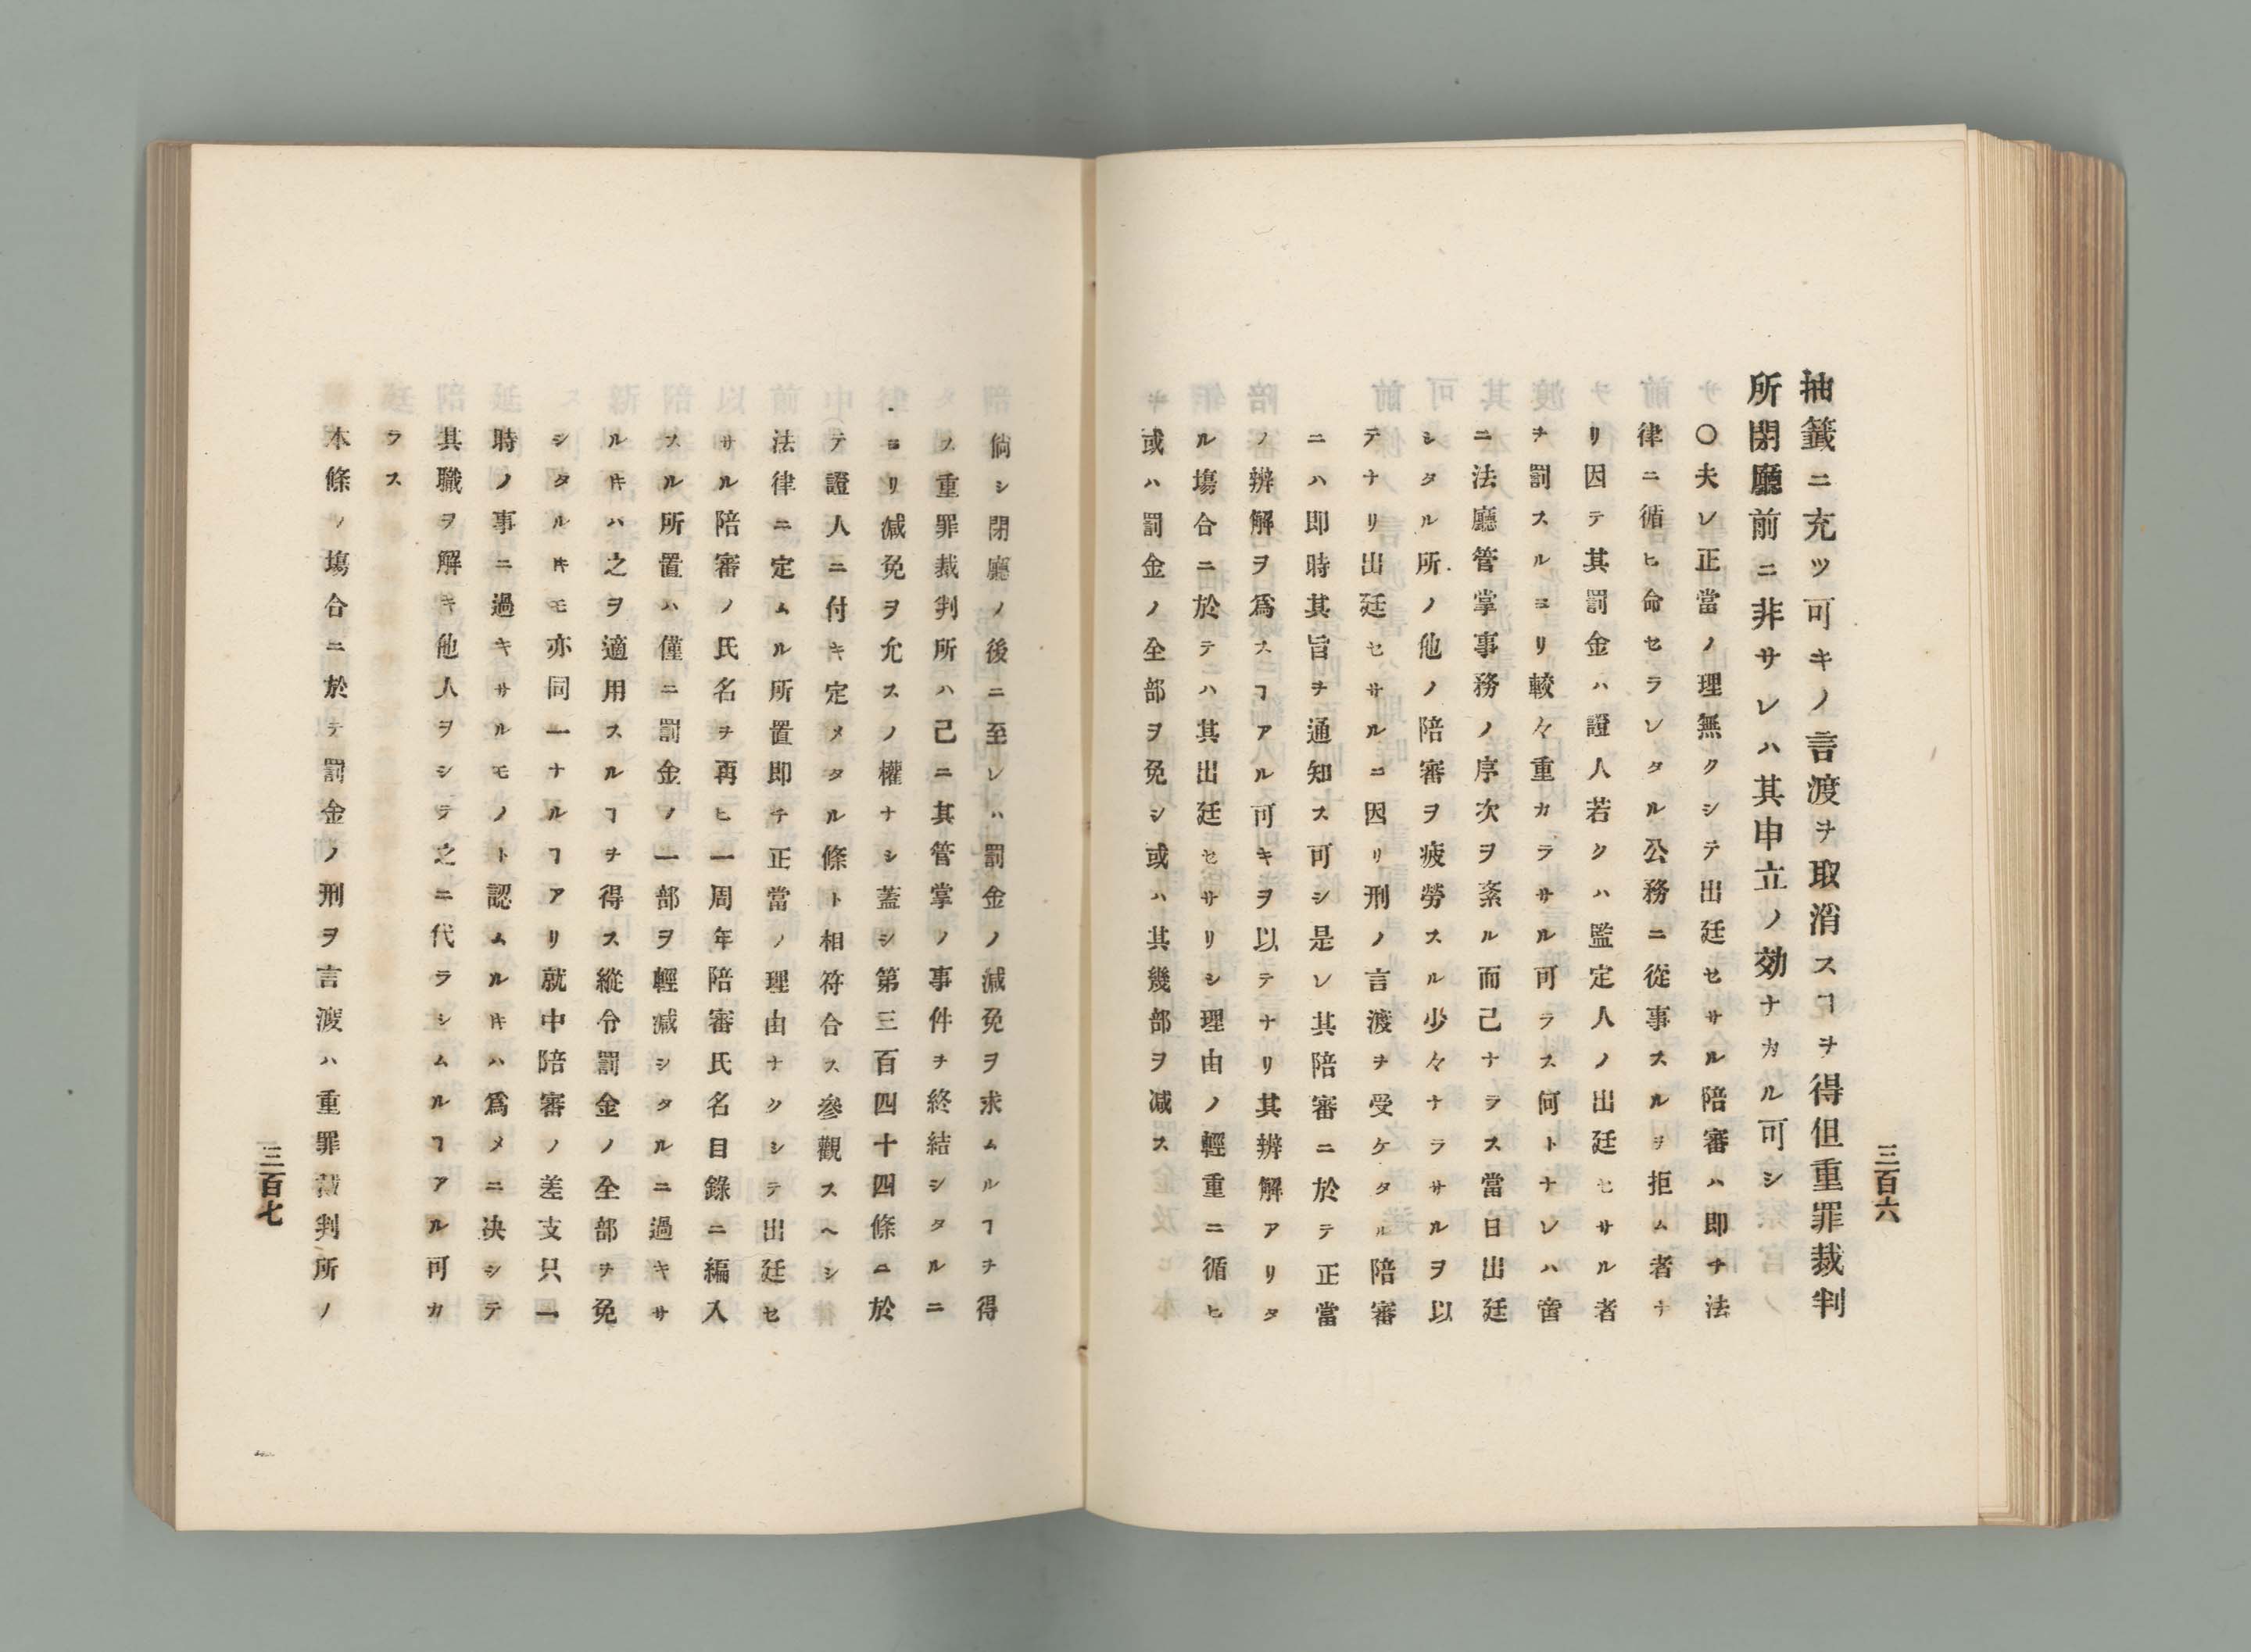 三百六
抽籤ニ充ツ可キノ言渡ヲ取消スヿヲ得但重罪裁判
所閉廳前ニ非サレハ其申立ノ効ナカル可シ
〇夫レ正當ノ理無クシテ出廷セサル陪審ハ即チ法
律ニ循ヒ命セラレタル公務ニ從事スルヲ拒ム者ナ
リ因テ其罰金ハ證人若クハ監定人ノ出廷セサル者
ヲ罰スルヨリ較々重カラサル可ラス何トナレハ啻
ニ法廳管掌事務ノ序次ヲ紊ル而己ナラス當日出廷
シタル所ノ他ノ陪審ヲ疲勞スル少々ナラサルヲ以
テナリ出廷セサルニ因リ刑ノ言渡ヲ受ケタル陪審
ニハ即時其旨ヲ通知ス可シ是レ其陪審ニ於テ正當
ノ辨解ヲ爲スヿアル可キヲ以テナリ其辨解アリタ
ル塲合ニ於テハ其出廷セサリシ理由ノ輕重ニ循ヒ
或ハ罰金ノ全部ヲ免シ或ハ其幾部ヲ减ス
倘シ閉廳ノ後ニ至レハ罰金ノ减免ヲ求ムルヿヲ得
ス重罪裁判所ハ己ニ其管掌ノ事件ヲ終結シタルニ
ヨリ减免ヲ允スノ權ナシ蓋シ第三百四十四條ニ於
テ證人ニ付キ定メタル條ト相符合ス參觀スヘシ
法律ニ定ムル所置即チ正當ノ理由ナクシテ出廷セ
サル陪審ノ氏名ヲ再ヒ一周年陪審氏名目錄ニ編入
スル所置ハ僅ニ罰金ノ一部ヲ輕减シタルニ過キサ
ルキハ之ヲ適用スルヿヲ得ス縱令罰金ノ全部ヲ免
シタルキモ亦同一ナルヿアリ就中陪審ノ差支只一
時ノ事ニ過キサルモノト認ムルキハ爲メニ决シテ
其職ヲ解キ他人ヲシテ之ニ代ラシムルヿアル可カ
ラス
本條ノ塲合ニ於テ罰金ノ刑ヲ言渡ハ重罪裁判所ノ
三百七